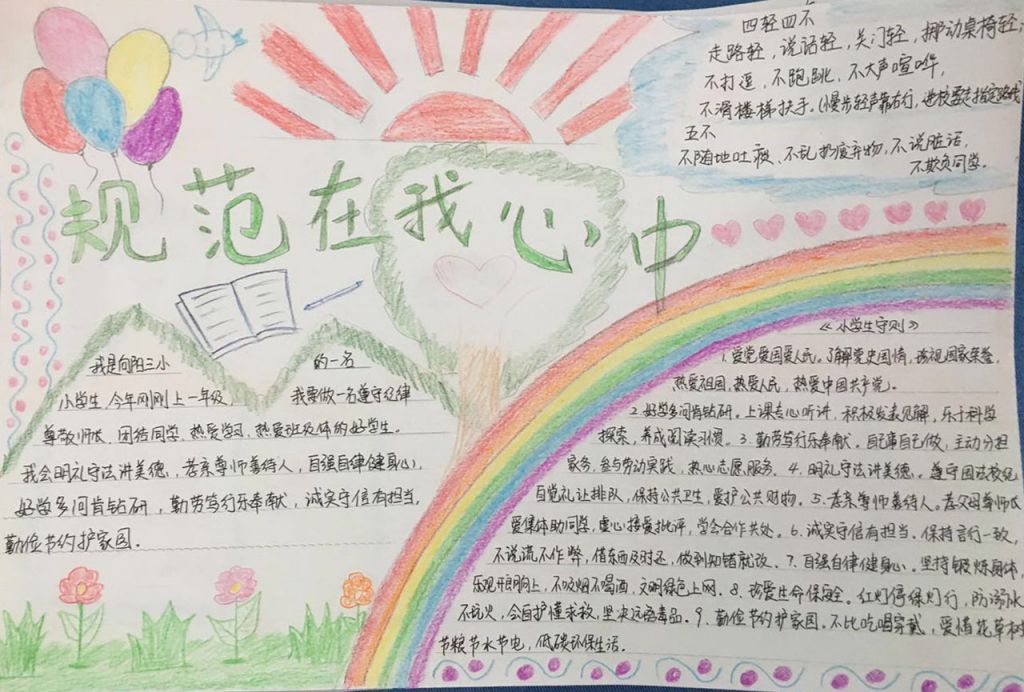 规范在我心中
四轻四不
走路轻，说话轻，关门轻，挪动桌椅轻；
不打逗，不跑跳，不大声喧哗，
不滑楼梯扶手。(慢步轻声靠右行，进校要走指定路线)
五不
不随地吐痰、不乱扔废弃物，不说脏话，
不欺负同学。
我是向阳三小的一名
小学生，今年刚刚上一年级，我要做一名遵守纪律
尊敬师长，团结同学，热爱学习，热爱班级体的好学生。
我会明礼守法讲美德，孝亲尊师善待人，自强自律健身心，
好学多问肯钻研，勤劳笃行乐奉献，诚实守信有担当，
勤俭节约护家园.
《小学生守则》
1.爱党爱国爱人民。了解党史国情，珍视国家荣誉，
热爱祖国，热爱人民，热爱中国共产党。
2.好学多问肯钻研。上课专心听讲，积极发表见解，乐于科学
探索，养成阅读习惯。3.勤劳笃行乐奉献。自己事自己做，主动分担
家务，参与劳动实践，热心志愿服务。4.明礼守法讲美德。遵守国法校纪
自觉礼让排队，保持公共卫生，爱护公共财物。5.孝亲尊师善待人。孝父母尊师长
爱集体助同学，虚心接受批评，学会合作共处。6.诚实守信有担当.保持言行一致，
不说谎不作弊，借东西及时还，做到知错就改。7.自强自律健身心。坚持锻炼身体，
乐观开朗向上，不吸烟不喝酒，文明绿色上网。8.珍爱生命保安全。红灯停绿灯行，防溺水
不玩火，会自护懂求救，坚决远离毒品。9.勤俭节约护家园.不比吃喝穿戴，爱惜花草树木
节粮节水节电，低碳环保生活.